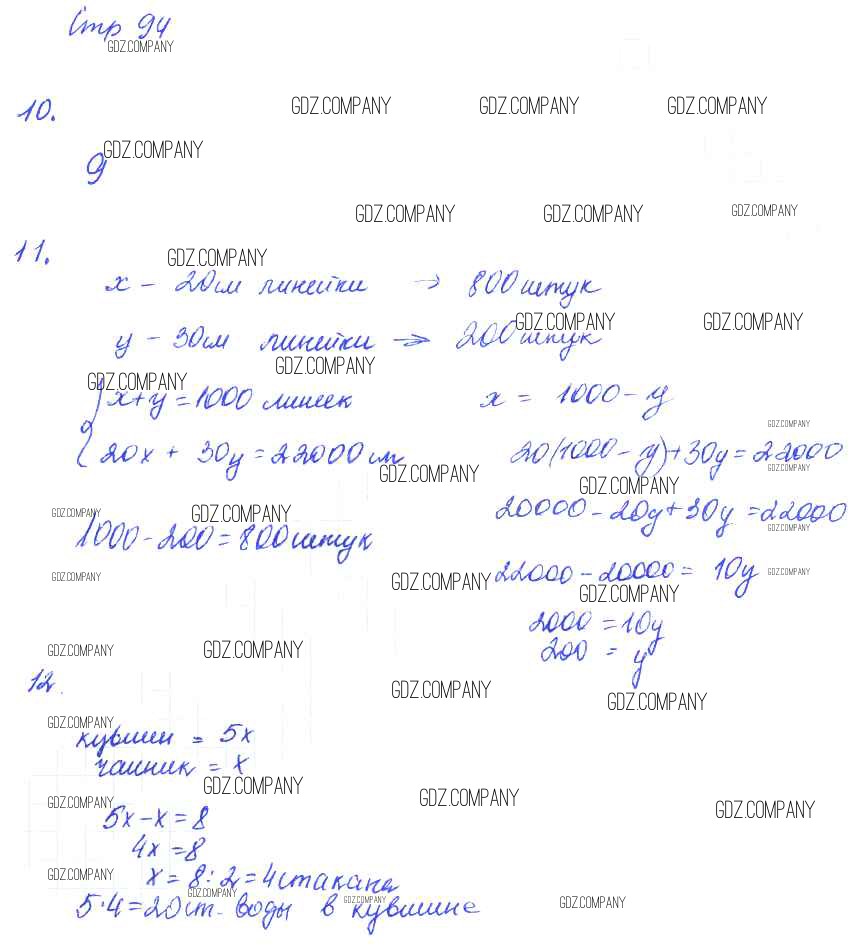 Стр 94
GDZ.COMPANY
10.
GDZ.COMPANY GDZ.COMPANY GDZ.COMPANY
GDZ.COMPANY
9
GDZ.COMPANY GDZ.COMPANY GDZ.COMPANY
11.
GDZ.COMPANY
x – 20см линейки → 800 штук
GDZ.COMPANY GDZ.COMPANY
y – 30см линейки → 200 штук
GDZ.COMPANY
GDZ.COMPANY
x+y=1000 линеек x = 1000 – y
GDZ.COMPANY
20x + 30y = 22000 см 20(1000 – y)+30y = 22000
GDZ.COMPANY GDZ.COMPANY
GDZ.COMPANY
20000 – 20y + 30y = 22000
GDZ.COMPANY GDZ.COMPANY GDZ.COMPANY
1000 – 200 = 800 штук
22000 – 20000 = 10y
GDZ.COMPANY GDZ.COMPANY GDZ.COMPANY
GDZ.COMPANY
2000 = 10y
200 = y
GDZ.COMPANY GDZ.COMPANY
12.
GDZ.COMPANY GDZ.COMPANY
GDZ.COMPANY
кувшин = 5x
чайник = x
GDZ.COMPANY
GDZ.COMPANY GDZ.COMPANY GDZ.COMPANY
5x – x = 8
4x = 8
GDZ.COMPANY
x = 8 : 2 = 4 стакана
GDZ.COMPANY GDZ.COMPANY GDZ.COMPANY
5·4=20 ст. воды в кувшине